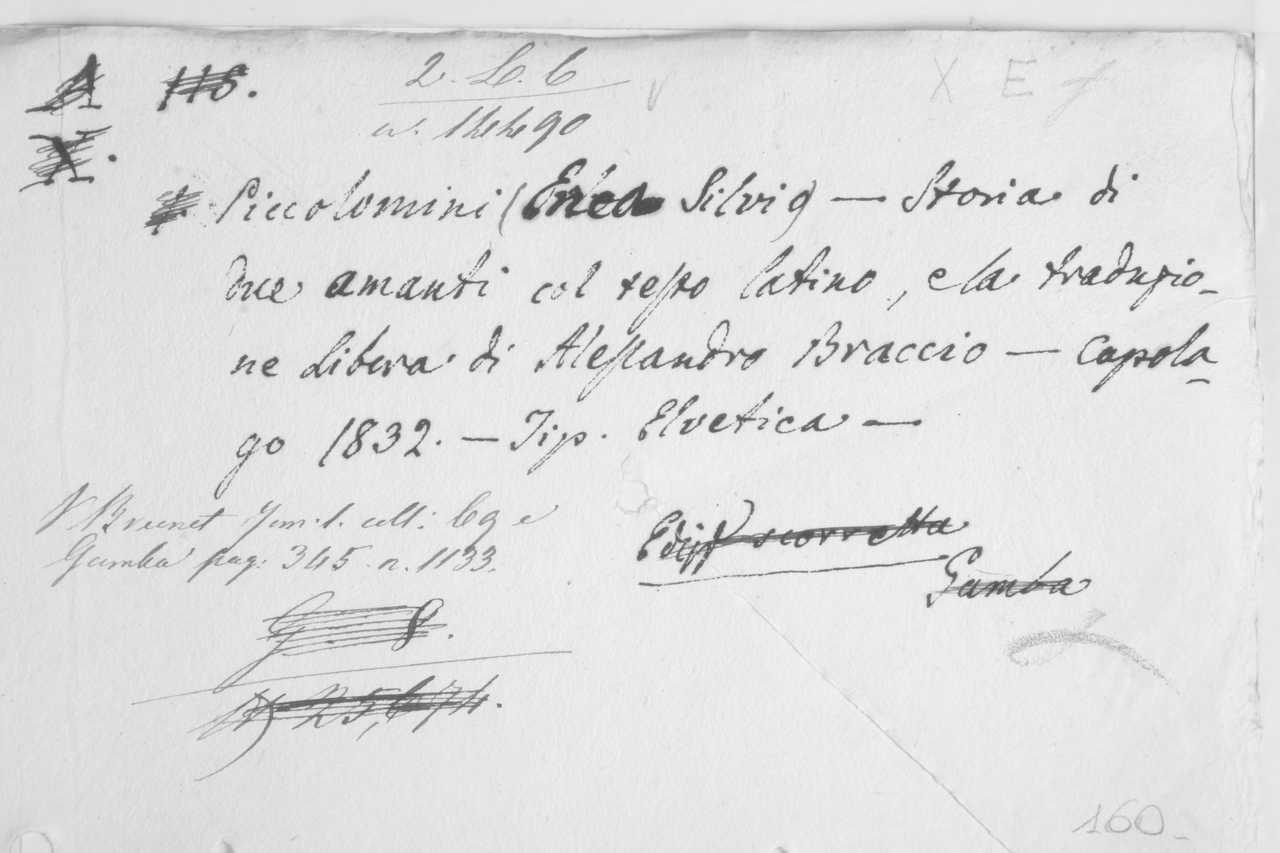 A 118.
2. L. 6
X E f
n. 14490
X.
Piccolomini (Enea Silvio) — Storia di
due amanti col testo latino, e la traduzio-
ne libera di Alessandro Braccio — Capola-
go 1832. — Tip. Elvetica —
V. Brunet Tom. 1. coll: 69 e
Gamba pag: 345. n. 1133.
Ediz. scorretta
Gamba
G. 8.
25,674.
160